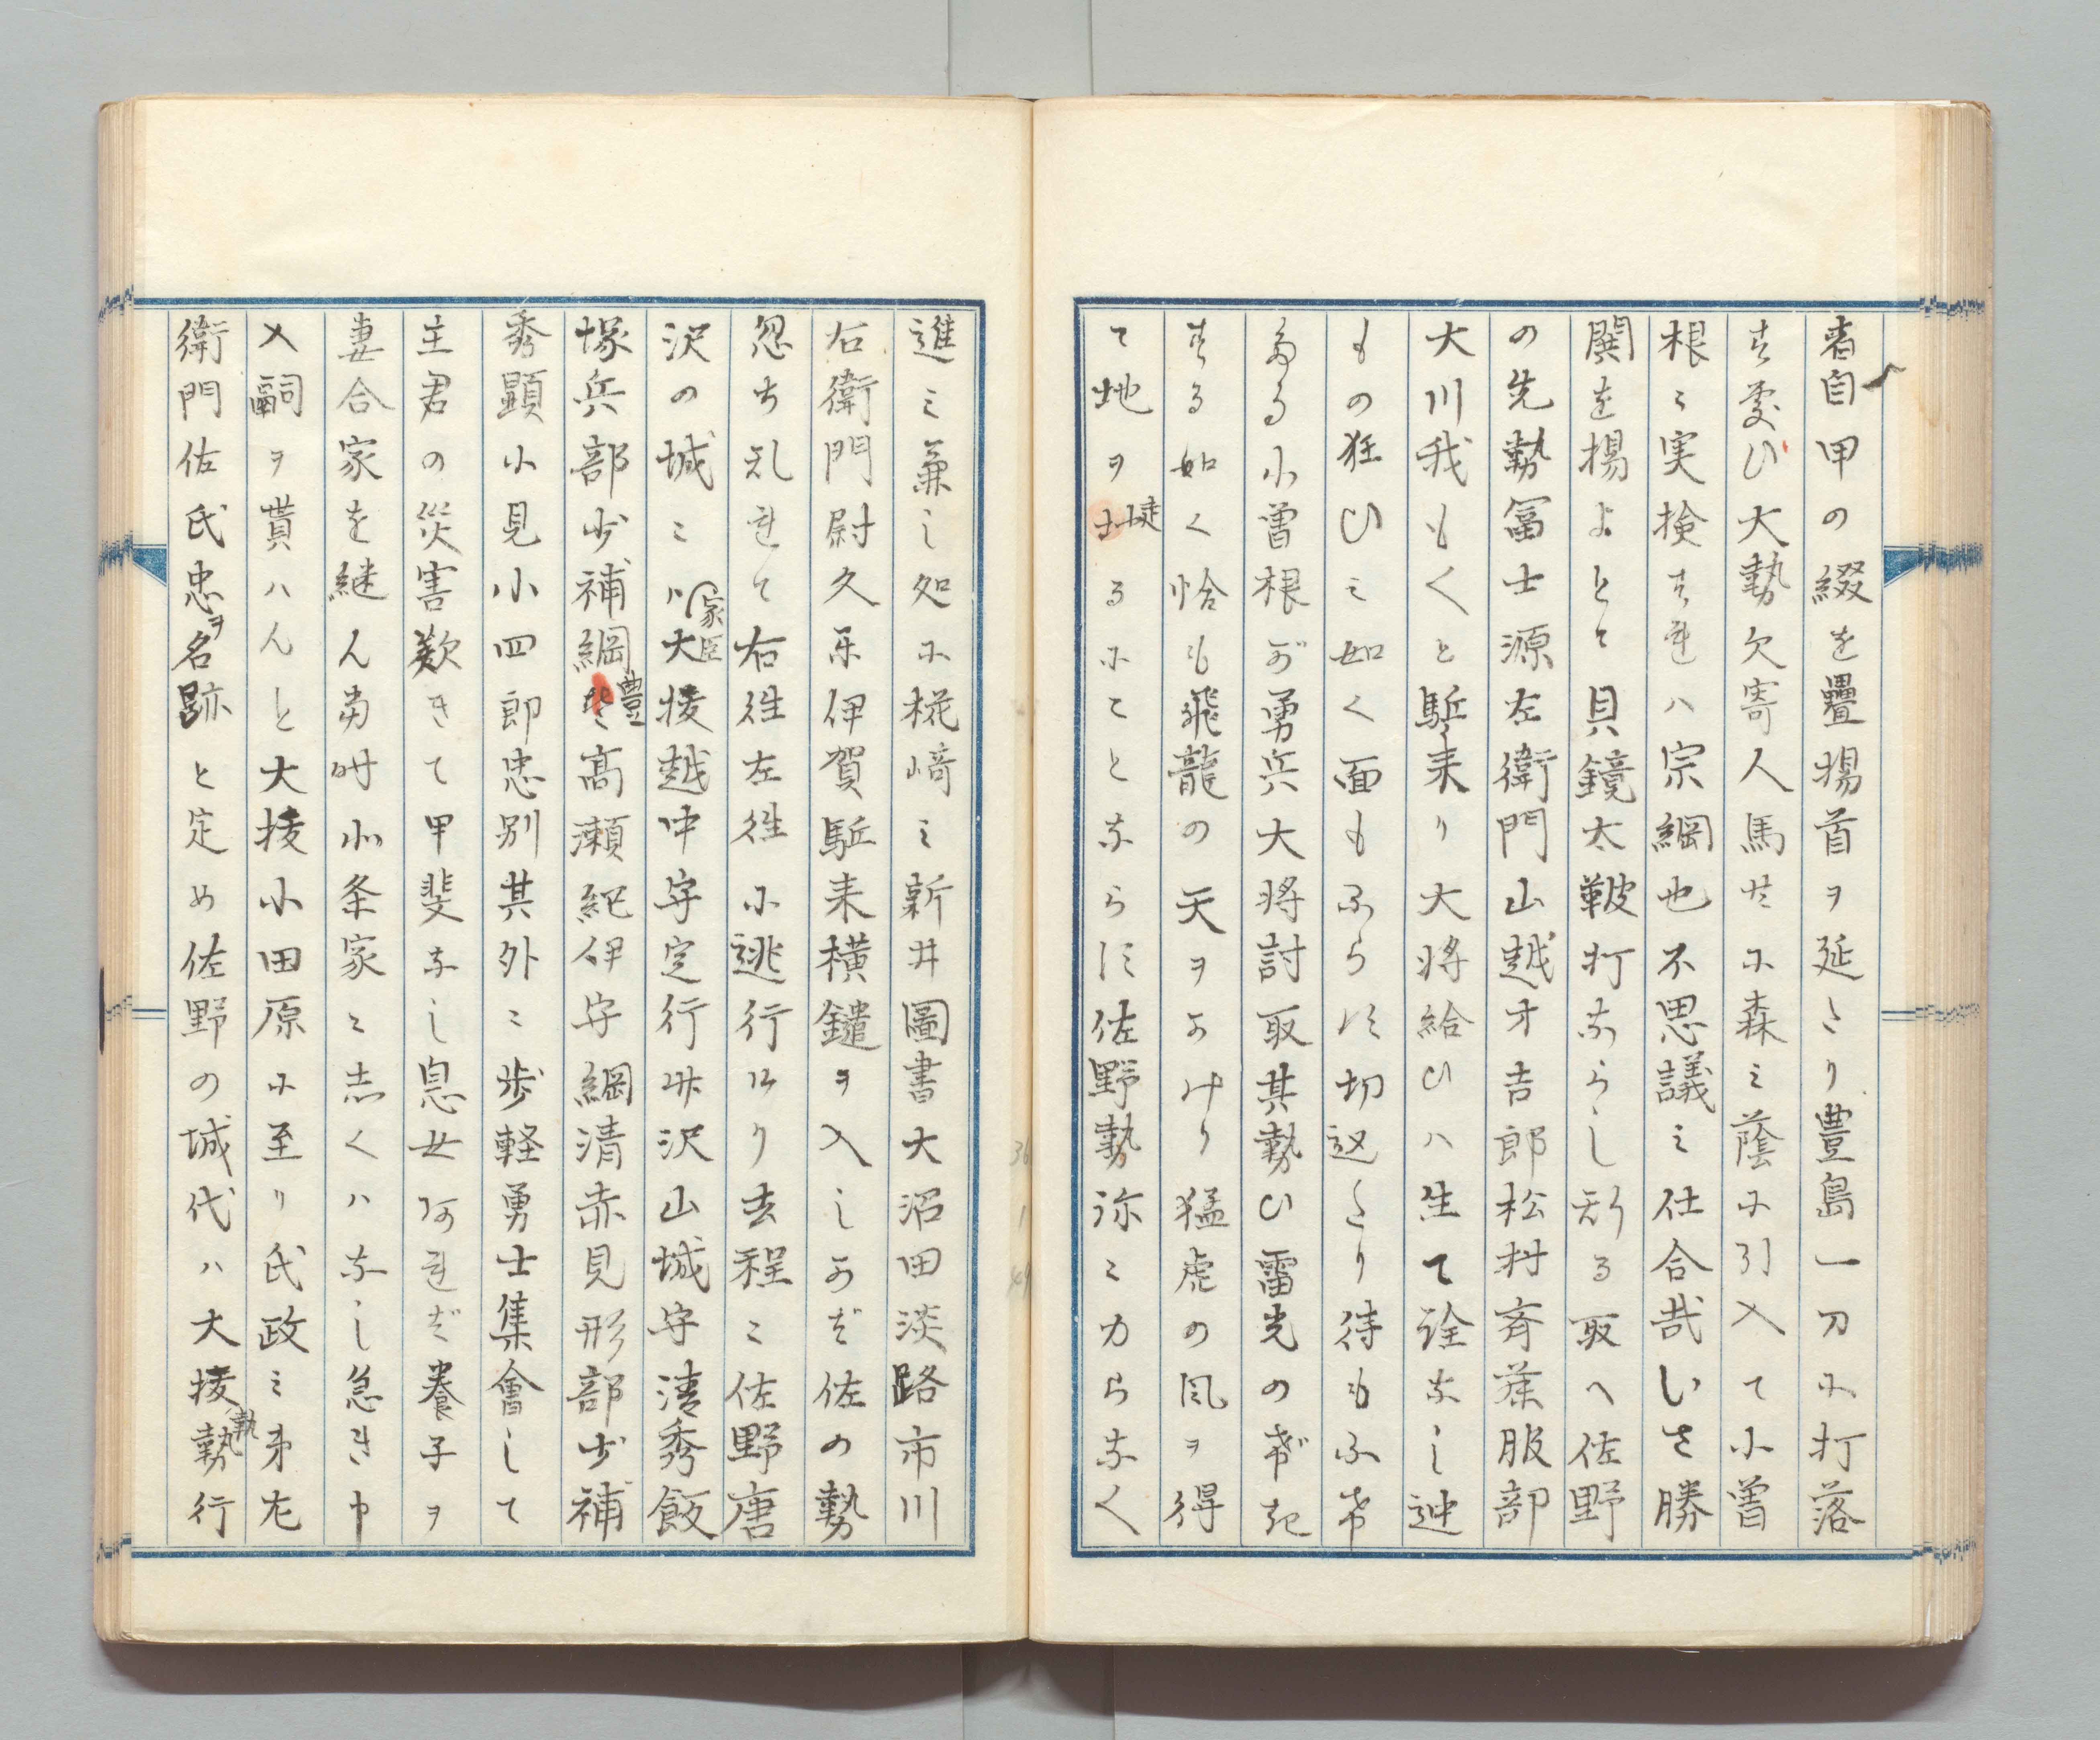 者自甲の綴を疊揚首ヲ延たり豊島一刀に打落
す忍び大勢欠寄人馬共に森之蔭に引入て小曽
根ニ実検すれハ宗綱也不思議之仕合哉いさ勝
鬨を揚よとて貝鐘太鞁打ならし帰る取へ佐野
の先勢冨士源左衛門山越才吉郎松村斉藤服部
大川我もくと駈来り大将給ひハ生て詮なし迚
もの狂ひ之如く面もふらす切込たり待もふけ
たる小曽根が勇兵大将討取其勢ひ雷光のごと
する如く恰も飛龍の天ヲかけり猛虎の凨ヲ得
て地ヲ走るにことならす佐野勢弥ニ力らなく
進ミ兼し処に椛﨑之新井圖書大沼田淡路市川
右衛門尉久米伊賀駈来横鑓ヲ入しかば佐の勢
忽ち乱れて右徃左徃に逃行けり去程ニ佐野唐
沢の城ニハ家臣大㧞越中守定行竹沢山城守清秀飯
塚兵部少補綱豊髙瀬紀伊守綱清赤見形部少補
秀顕小見小四郎忠別其外ニ歩軽勇士集會して
主君の災害歎きて甲斐なし息女阿れば養子ヲ
妻合家を継ん當時北条家ニ志くハなし急き申
入嗣ヲ貰ハんと大㧞小田原に至り氏政之弟左
衛門佐氏忠ヲ名跡と定め佐野の城代ハ大㧞勢行